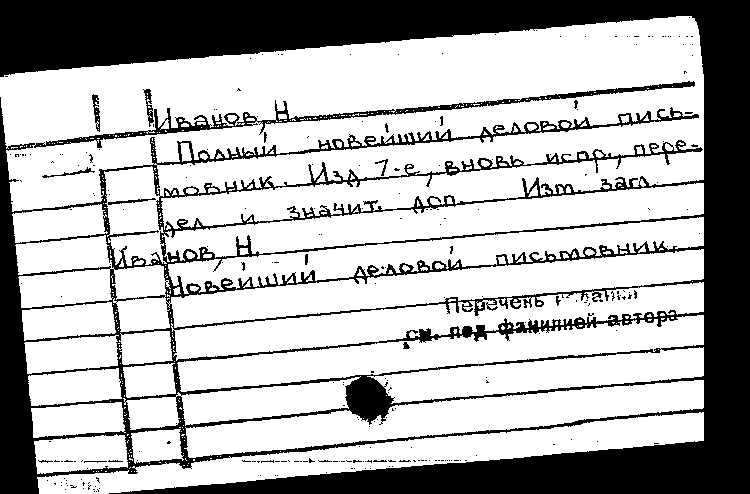 Иванов, Н.
Полный новейший деловой пись-
мовник. Изд. 7-е, вновь испр., пере-
дел. и значит. доп. Изт. загл.
Иванов, Н.
Новейший деловой письмовник.
Перечень изданий
см. под фамилией автора